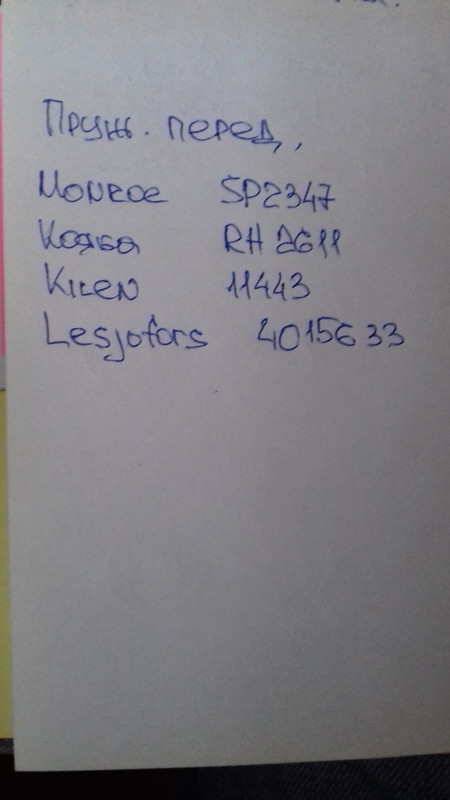 Пруж. перед,
Monroe SP2347
Каяба RH2611
Kilen 11443
Lesjofors 4015633